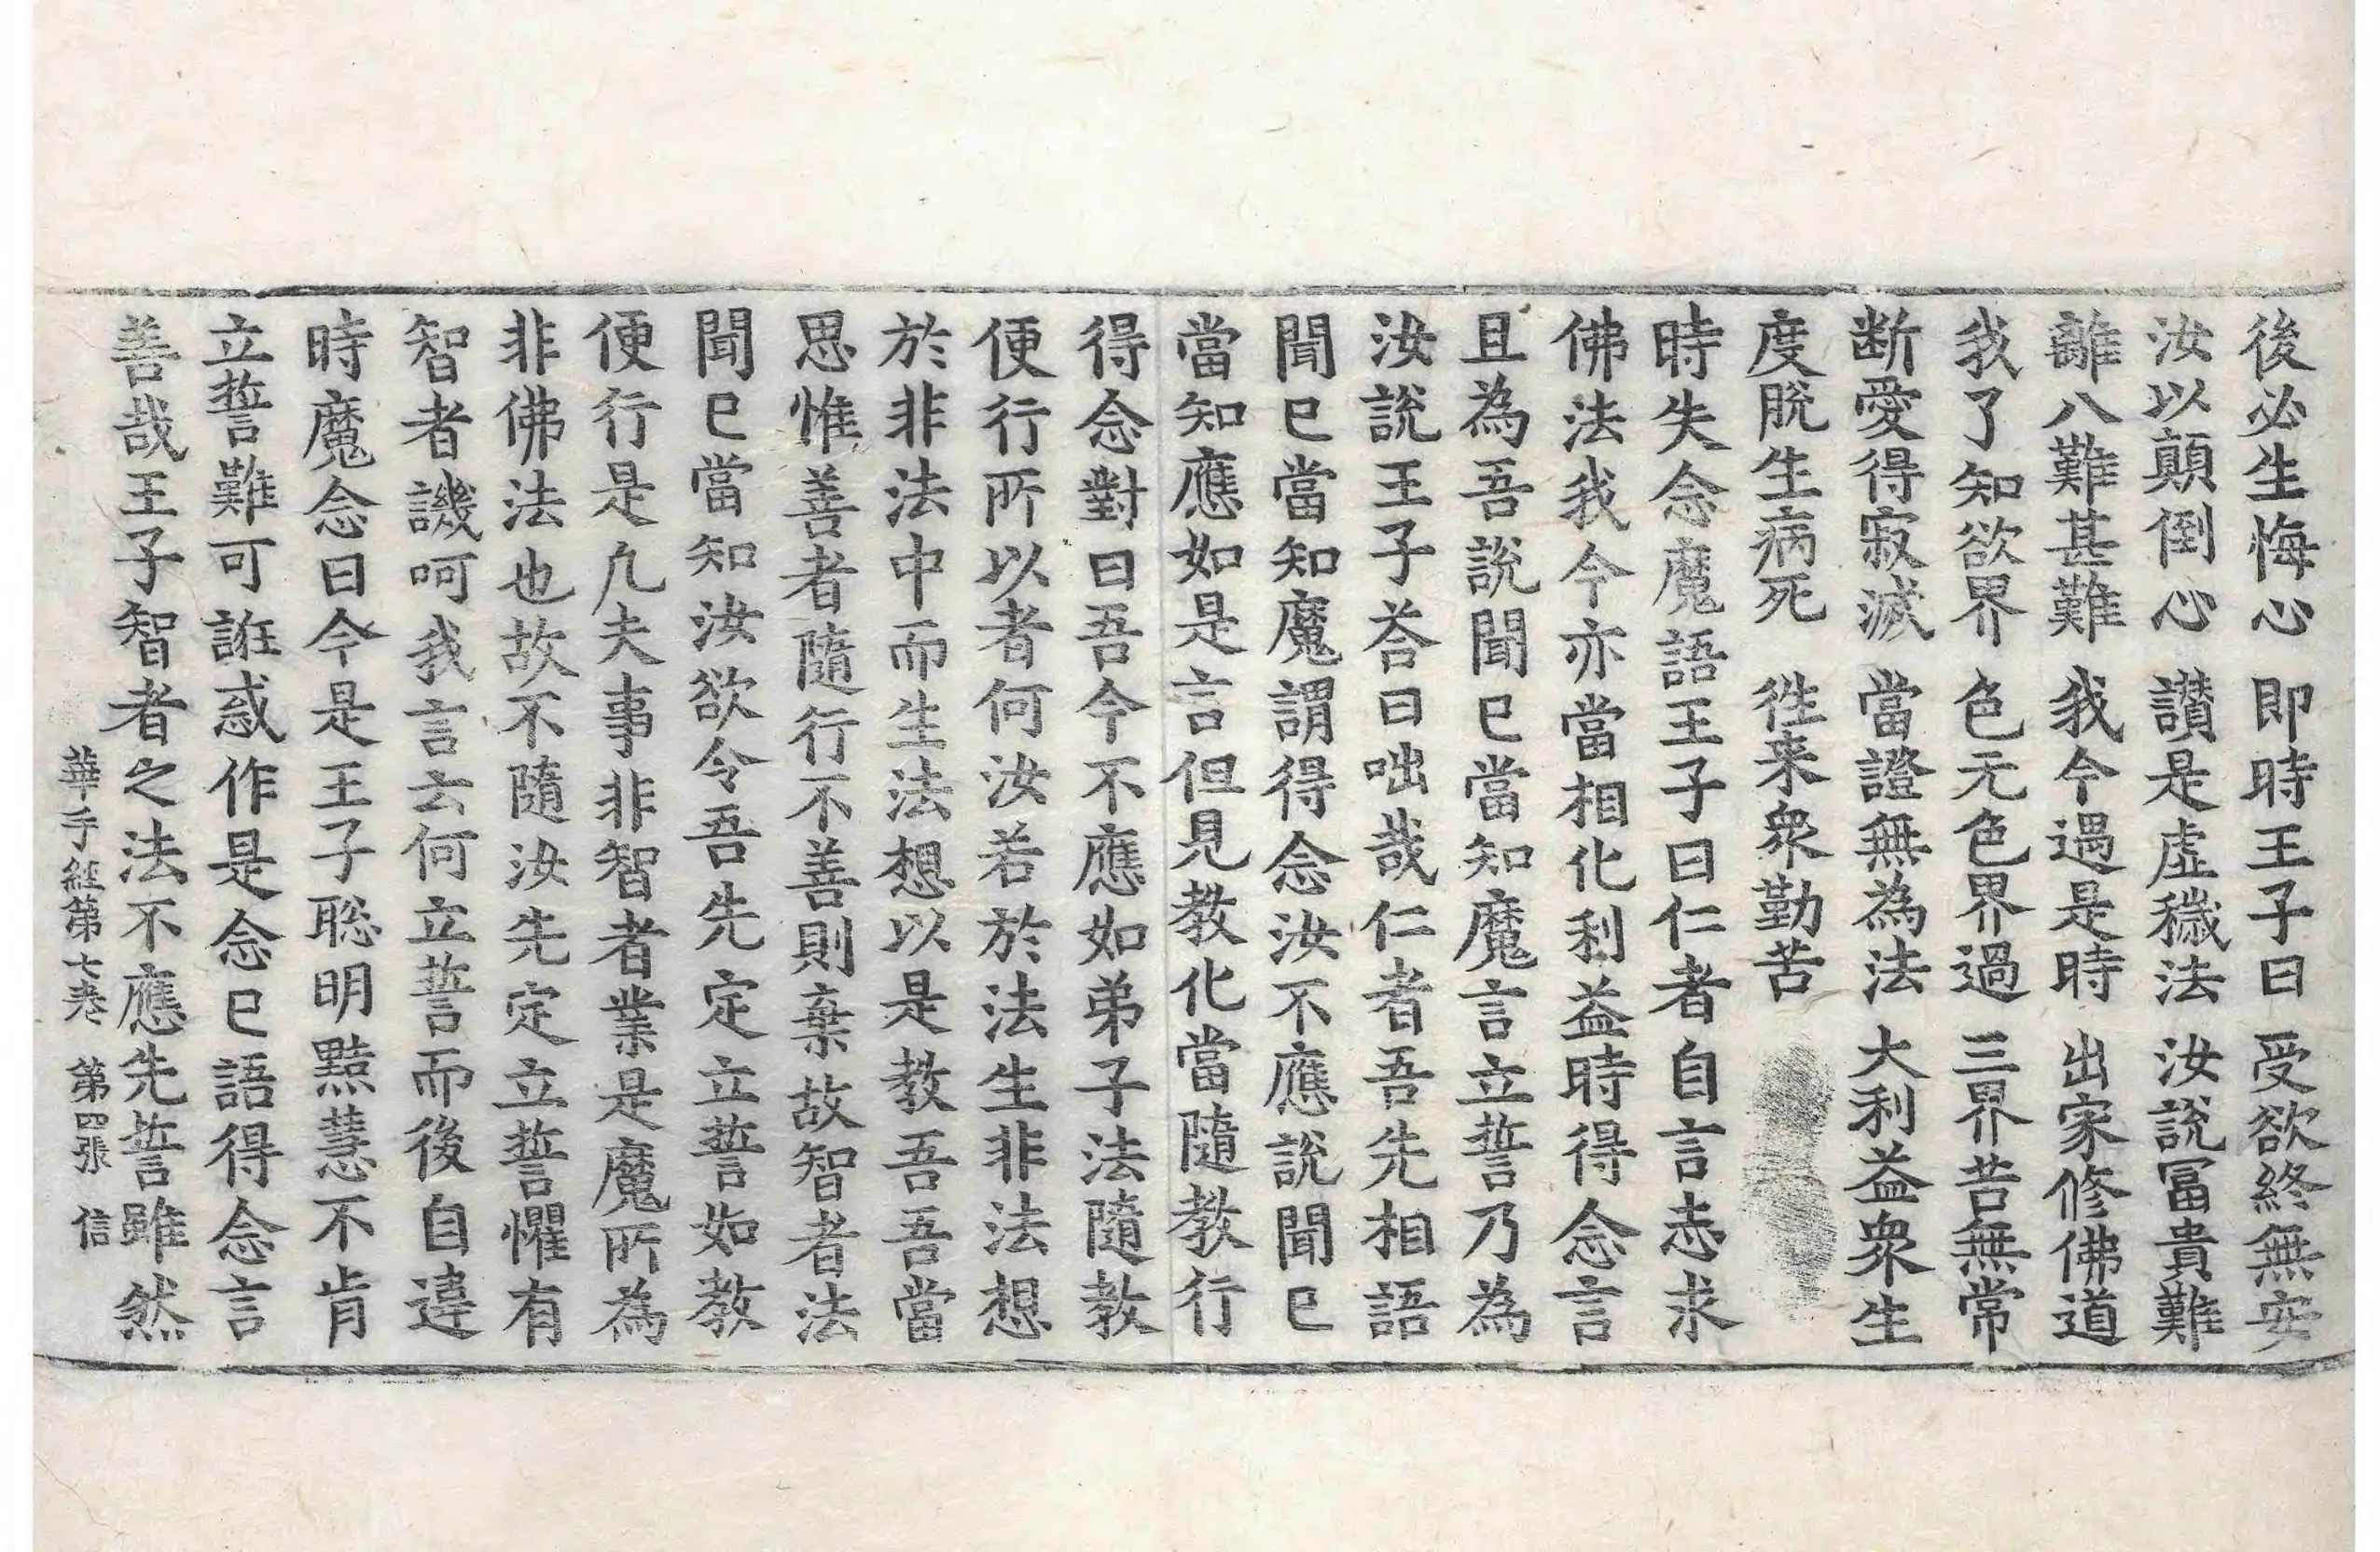 後必生悔心　即時王子曰　受欲終無安
汝以顛倒心　讃是虛穢法　汝說冨貴難
離八難甚難　我今遇是時　出家修佛道
我了知欲界　色无色界過　三界苦無常
断愛得寂滅　當證無為法　大利益衆生
度脫生病死　徃来衆勤苦
時失念魔語王子曰仁者自言志求
佛法我今亦當相化利益時得念言
且為吾說聞已當知魔言立誓乃為
汝說王子荅曰咄哉仁者吾先相語
聞已當知魔謂得念汝不應說聞已
當知應如是言但見教化當隨教行
得念對曰吾今不應如弟子法隨教
便行所以者何汝若於法生非法想
於非法中而生法想以是教吾吾當
思惟善者隨行不善則棄故智者法
聞已當知汝欲令吾先定立誓如教
便行是凡夫事非智者業是魔所為
非佛法也故不隨汝先定立誓懼有
智者譏呵我言云何立誓而後自違
時魔念曰今是王子聡明黠慧不肯
立誓難可誑惑作是念已語得念言
善哉王子智者之法不應先誓雖然
華手經第七卷　第四張　信